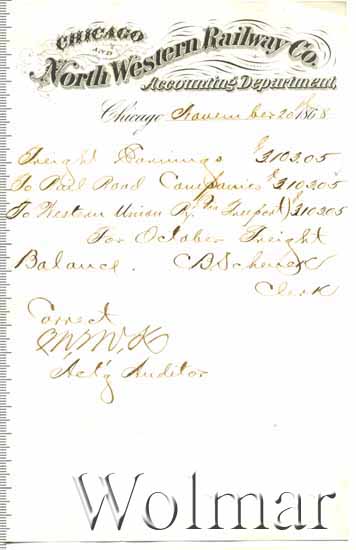 CHICAGO
AND
North Western Railway Co.
Accounting Department,
Chicago November 20th 1868
Freight Earnings $3103.05
To Rail Road Companies $3103.05
To Western Union Ry. (Freeport) $3103.05
For October Freight
Balance. C B Schenck
Clerk
Correct
Act'g Auditor
Wolmar